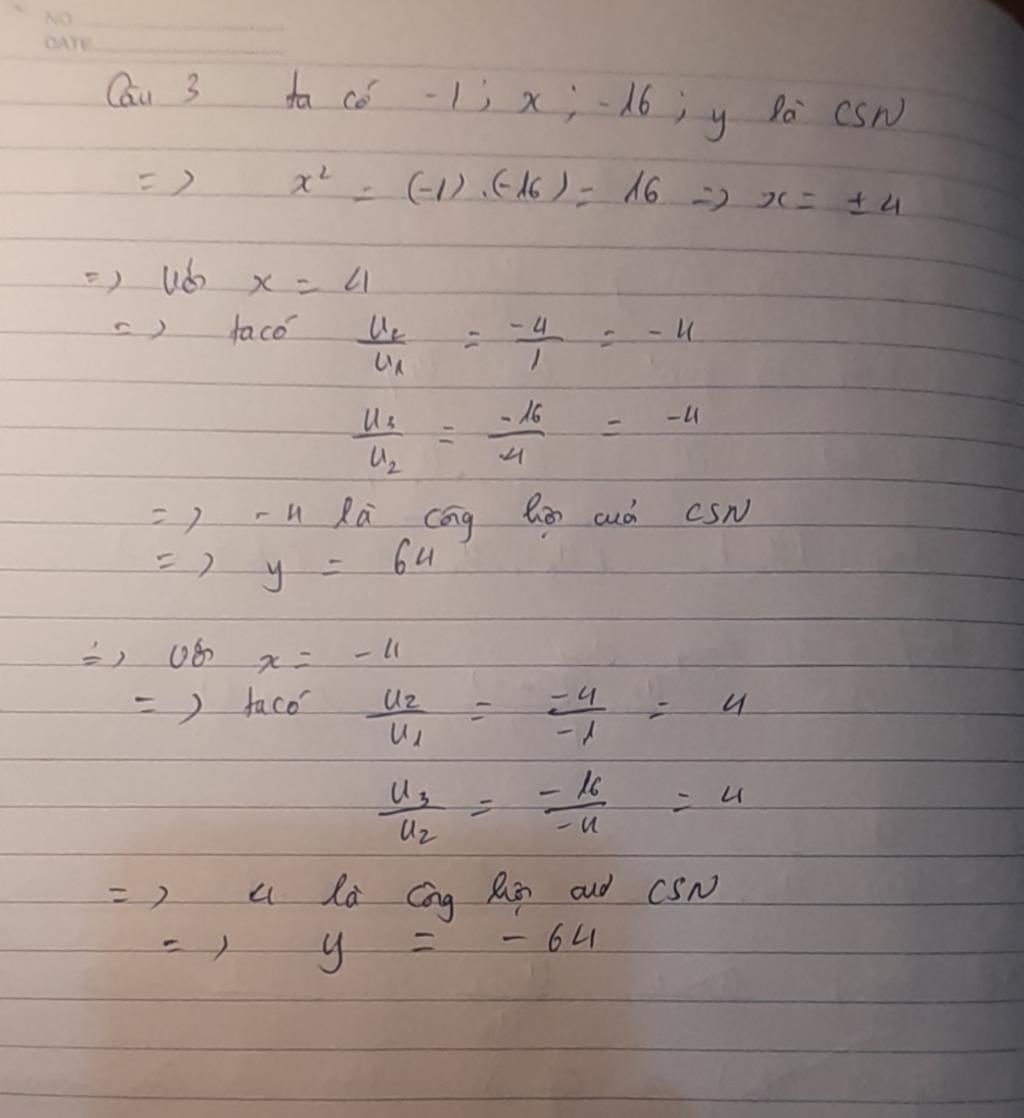 NO
DATE
Câu 3 ta có -1 ; x ; -16 ; y là CSN
=> x² = (-1).(-16) = 16 => x = ±4
=> Với x = 4
=> ta có u₂/u₁ = -4/1 = -4
u₃/u₂ = -16/4 = -4
=> -4 là công bội của CSN
=> y = 64
=> Với x = -4
=> ta có u₂/u₁ = -4/-1 = 4
u₃/u₂ = -16/-4 = 4
=> 4 là công bội của CSN
=> y = -64